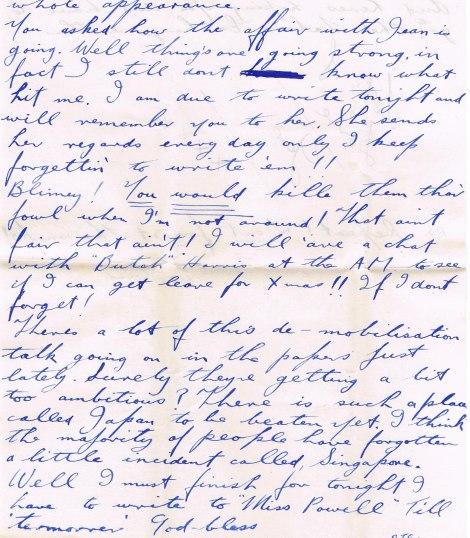 whole appearance.
You asked how the affair with Jean is
going. Well things are going strong, in
fact I still dont know what
hit me. I am due to write tonight and
will remember you to her. She sends
her regards every day only I keep
forgettin' to write 'em!!
Blimey! You would kille them thar
fowl when I'm not around! That aint
fair that ain't! I will 'ave a chat
with "Butch" Harris at the A.M. to see
if I can get leave for Xmas!! If I dont
forget!
Theres a lot of this de-mobilisation
talk going on in the papers just
lately. Surely theyre getting a bit
too ambitious? There is such a place
called Japan to be beaten yet. I think
the majority of people have forgotten
a little incident called, Singapore.
Well I must finish for tonight I
have to write to "Miss Powell" Till
'termorrer' God-bless